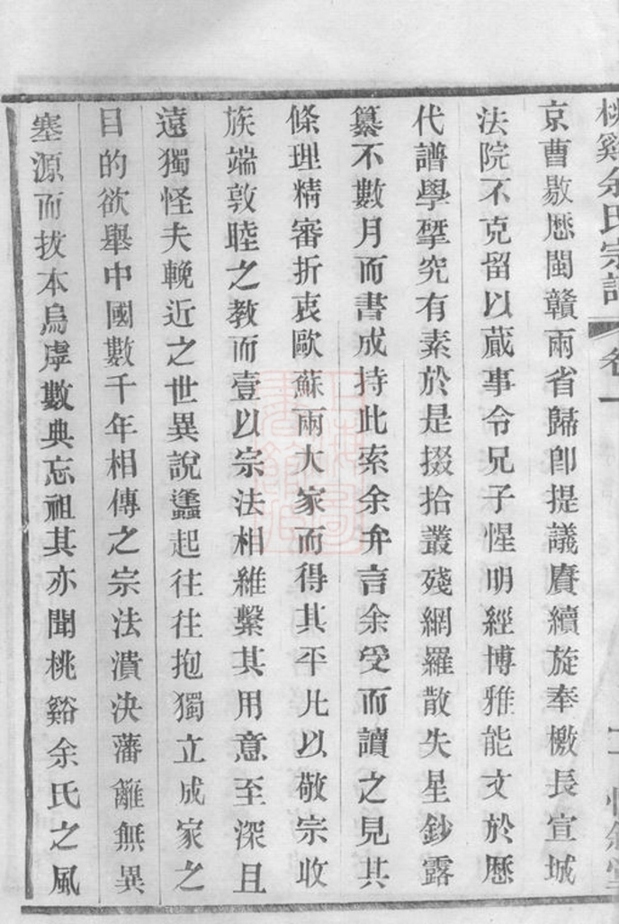 桃谿余氏宗譜 卷一
京曹敭歷閩贛兩省歸卽提議賡續旋奉檄長宣城
法院不克留以蕆事令兄子惺明經博雅能文於歷
代譜學揅究有素於是掇拾叢殘網羅散失星鈔露
纂不數月而書成持此索余弁言余受而讀之見其
條理精審折衷歐蘇兩大家而得其平凡以敬宗收
族端敦睦之教而壹以宗法相維繫其用意至深且
遠獨怪夫輓近之世異說蠭起往往抱獨立成家之
目的欲舉中國數千年相傳之宗法潰決藩籬無異
塞源而拔本烏虖數典忘祖其亦聞桃谿余氏之風